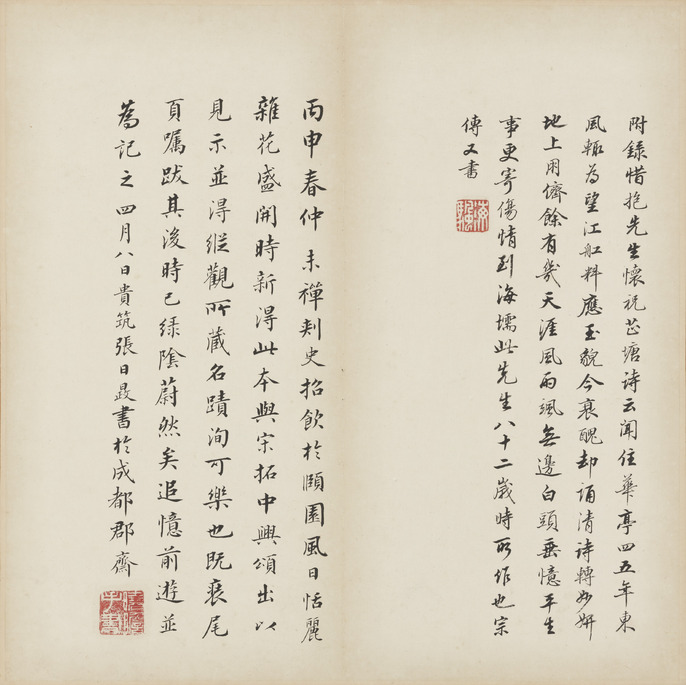 附錄惜抱先生懷祝芷塘诗云闻住華亭四五年東
風輒為望江舡料應玉貌今衰醜却誦清诗轉妙妍
地上用儕餘有幾天涯風雨颯無邊白頭垂憶平生
事更寄傷情到海壖此先生八十二歲時所作也宗
傳又書
丙申春仲未禪刺史招飲於頤園風日恬麗
雜花盛開時新得此本與宋拓中興頌出以
見示並得縱觀所藏名蹟洵可樂也既裒尾
頁囑跋其後時已綠陰蔚然矣追憶前遊並
為記之四月八日貴筑張日晸書於成都郡齋